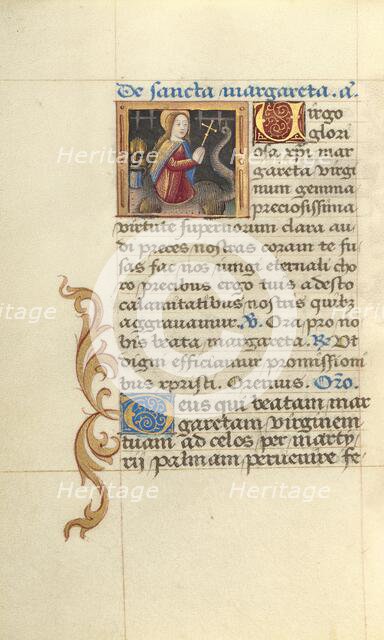 De sancta margareta. a.
Virgo
glori
osa xpi mar
gareta virgi
num gemma
preciosissima
virtute supernorum clara au
di preces nostras coram te fu
sas fac nos iungi eternali cho
ro precibus ergo tuis adesto
calamitatibus nostris quibz
aggravamur. V. Ora pro no
bis beata margareta. R. Ut
digni efficiamur promissioni
bus xpristi. Oremus. Oro.
Deus qui beatam mar
garetam virginem
tuam ad celos per marty
rii palmam pervenire fe
Heritage
Heritage
Heritage
Heritage
Heritage
Heritage
Heritage
Heritage